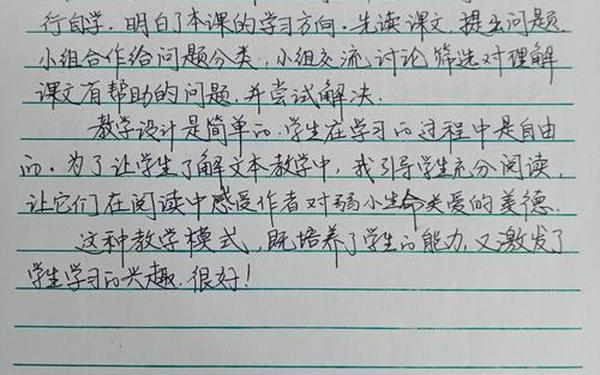 行自学，明白了本课的学习方向。先读课文，提出问题，
小组合作给问题分类，小组交流讨论筛选对理解
课文有帮助的问题，并尝试解决。
教学设计是简单的，学生在学习的过程中是自由
的。为了让学生了解文本教学中，我引导学生充分阅读，
让它们在阅读中感受作者对弱小生命关爱的美德。
这种教学模式，既培养了学生的能力，又激发了
学生学习的兴趣。很好！